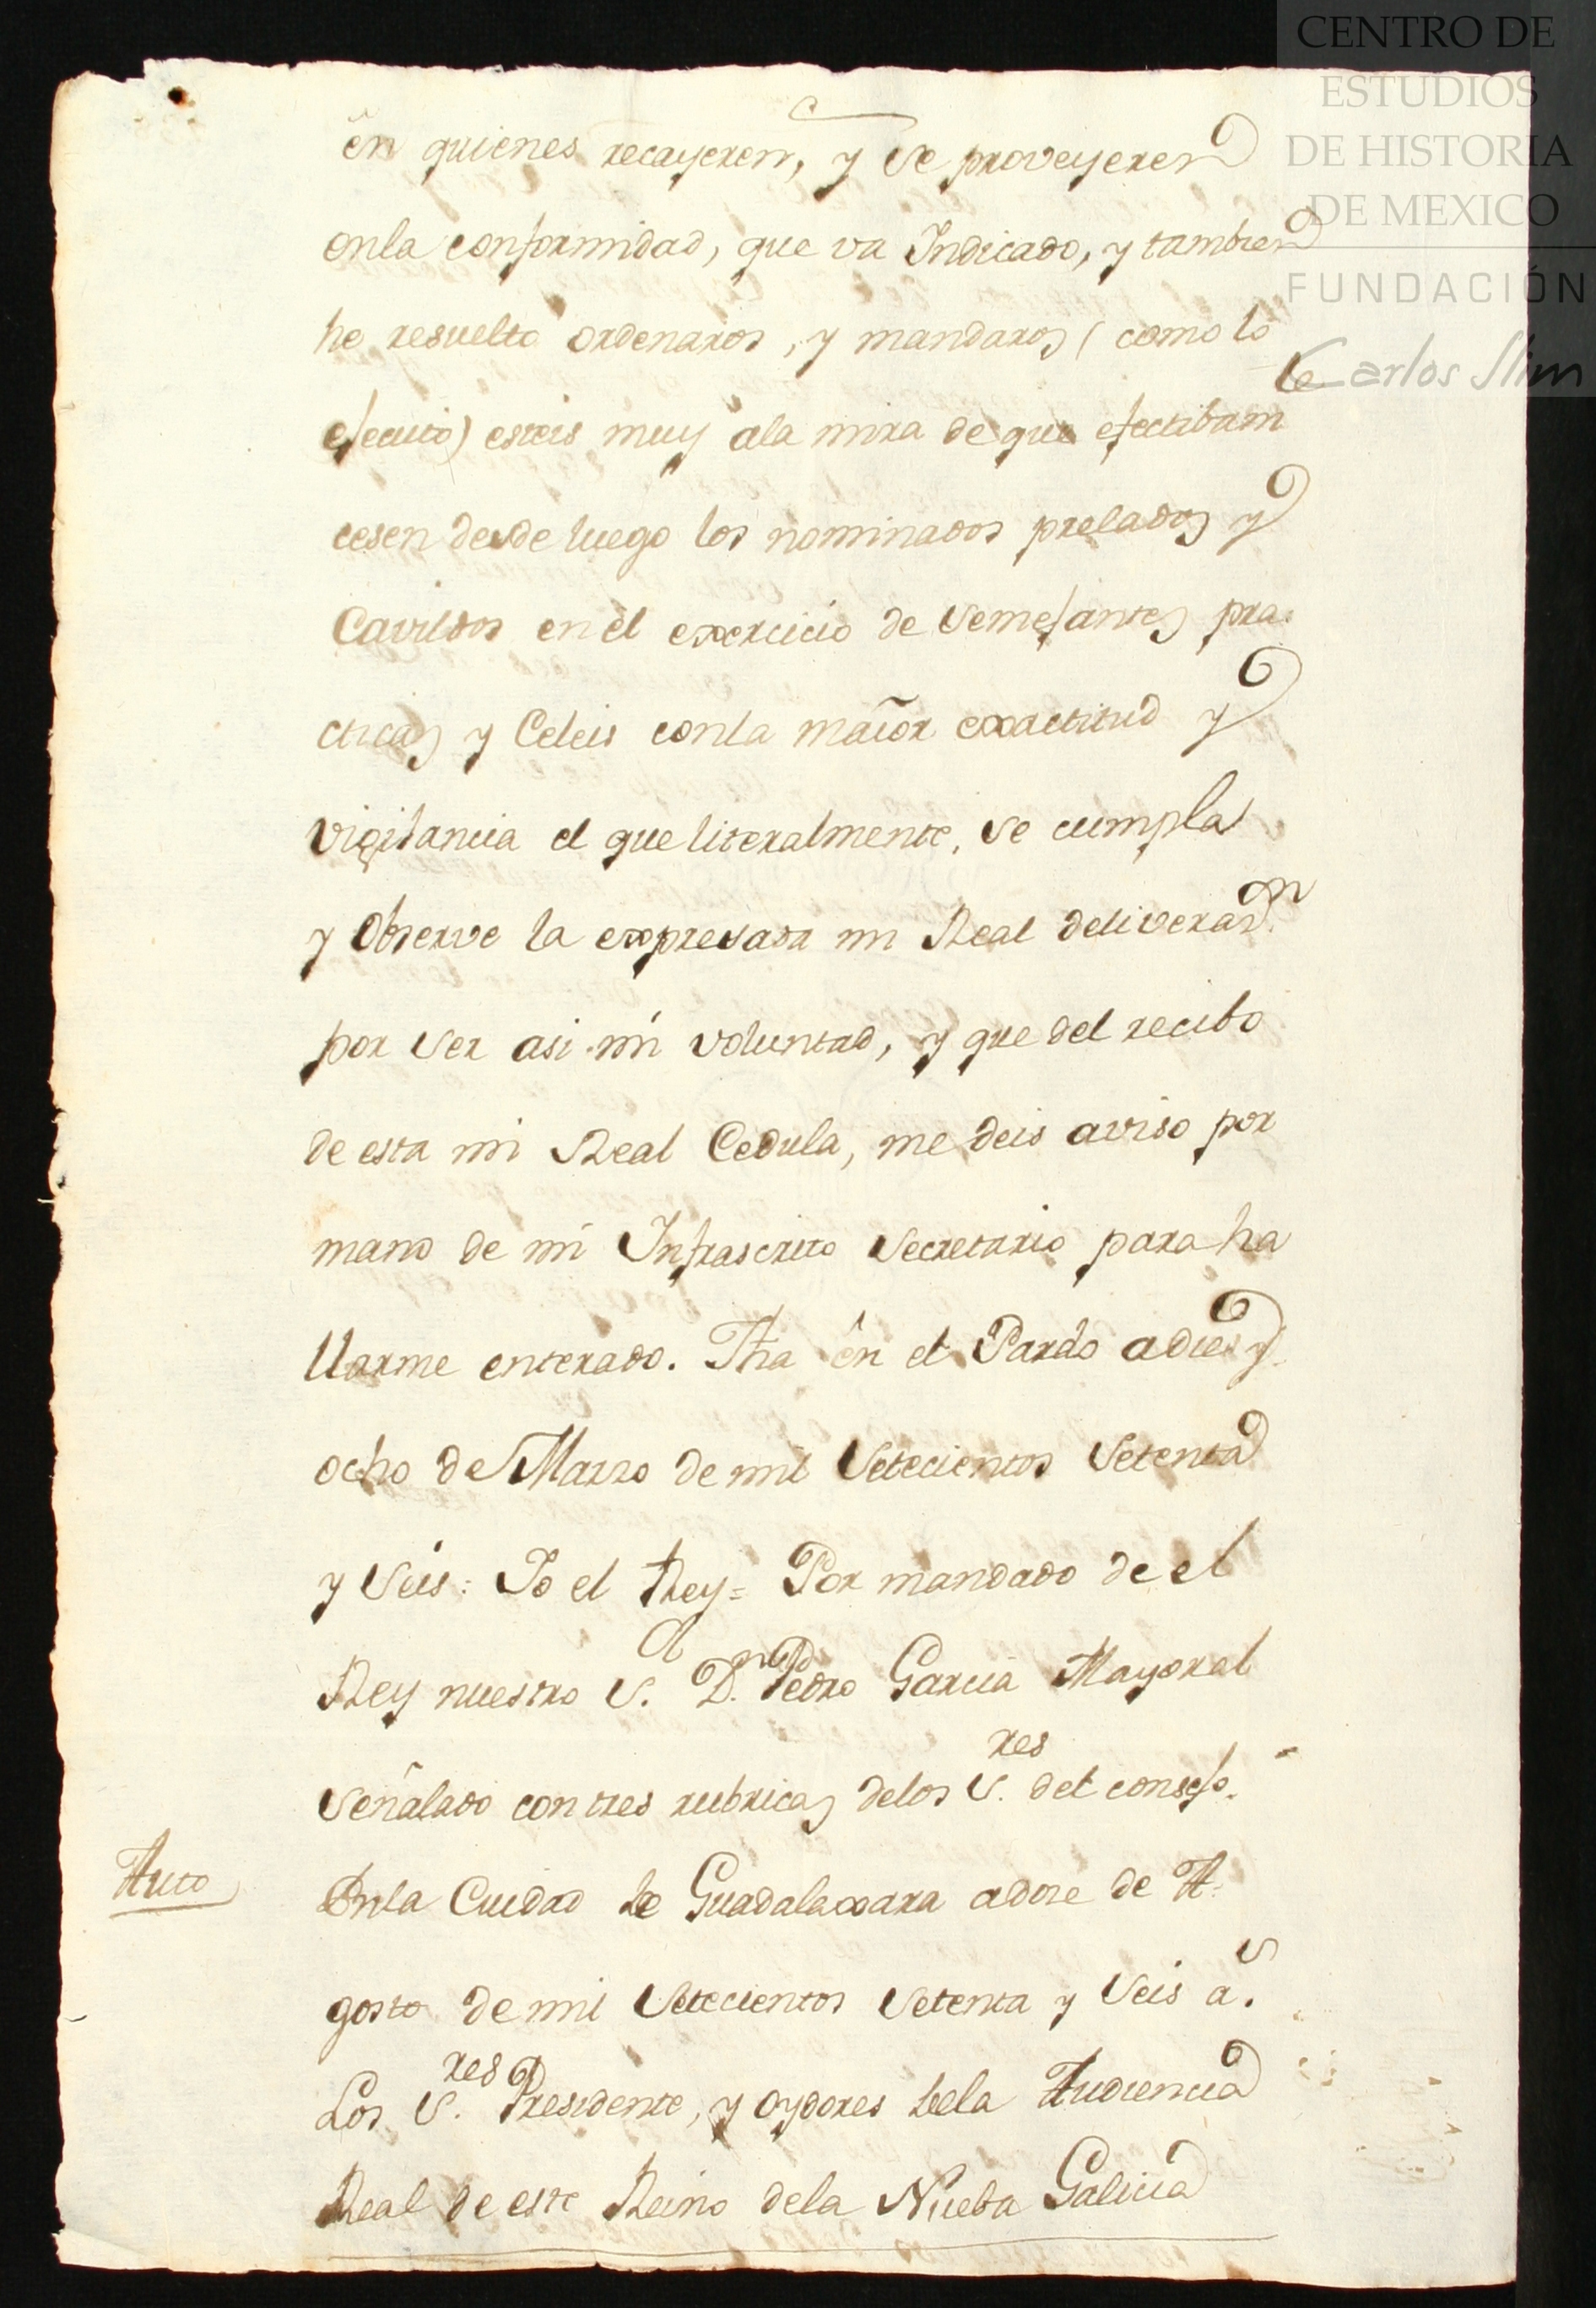 CENTRO DE
ESTUDIOS
DE HISTORIA
DE MEXICO
FUNDACIÓN
Carlos Slim
ên quienes recayeren, y se proveyeren
enla conformidad, que va Indicado, y tambien
he resuelto ordenaros, y mandaros ( como lo
executo) esteis muy ala mira de que efectibamte
cesen desde luego los nominados prelados y
Cavildos en el exercicio de semejantes pra-
cticas y Celeis conla maior exactitud y
vigilancia el que literalmente, se cumpla
y Observe la expresada mi Real deliveran.
por ser asi mi voluntad, y que del recibo
de esta mi Real Cedula, me deis aviso por
mano de mi Infrascrito Secretario para ha
llarme enterado. Fha ên el Pardo adies y
ocho de Marzo de mil Setecientos Setenta
y Seis: Io el Rey= Por mandado de el
Rey nuestro Sr. Dn. Pedro Garcia Mayoral
Señalado con tres rubricas delos Sres. del consejo.
Auto
Enla Ciudad de Guadalaxara adose de A-
gosto de mil Setecientos Setenta y Seis as.
Los Sres. Presidente, y oydores dela Audiencia
Real de este Reino dela Nueba Galicia